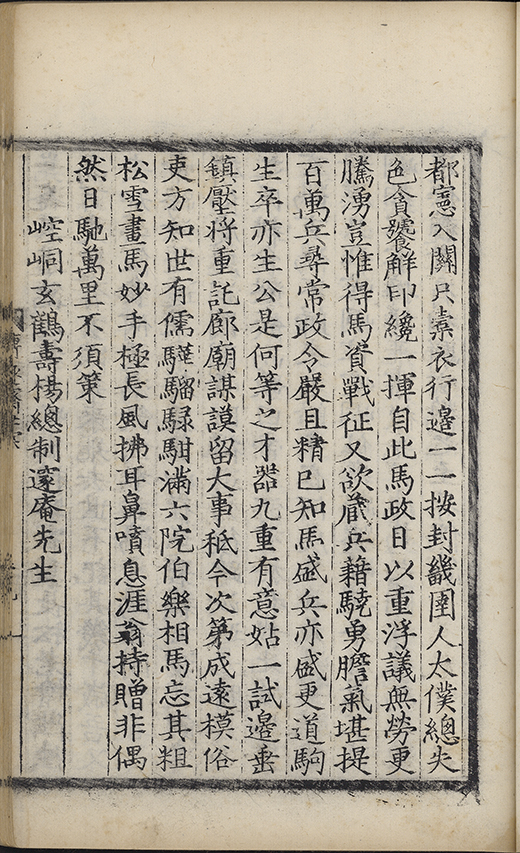 都憲入關只素衣行邊一一按封畿圉人太僕總失
色貪饕解印纔一揮自此馬政日以重浮議無勞更
騰湧豈惟得馬資戰征又欲厲兵藉驍勇膽氣堪提
百萬兵尋常政令嚴且精已知馬盛兵亦盛更道駒
生卒亦生公是何等之才器九重有意姑一試邊垂
鎮壓將重託廊廟謀謨留大事秪今次第成遠模俗
吏方知世有儒驊騮騄𩢡滿六院伯樂相馬忘其粗
松雪畫馬妙手極長風拂耳鼻噴息涯翁持贈非偶
然日馳萬里不須策
崆峒玄鶴壽楊總制邃庵先生